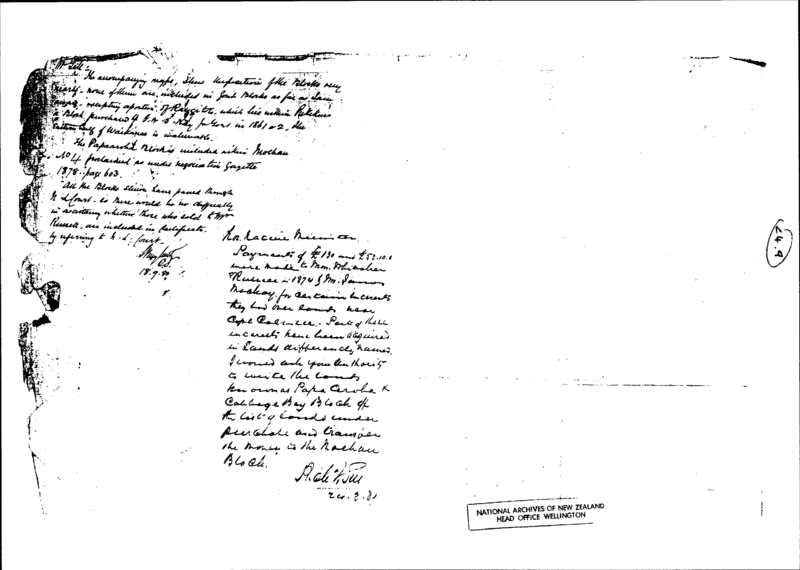 Mr Gill
The accompanying maps, shew the position of the Blocks very
nearly. none of them are included in Govt Blocks as far as I am
aware excepting a portion of
a Block purchased by Govt in 1861 or 2, the
of Waikawau is
The Papaaroha Block is included within Moehau
No 4 proclaimed as under negotiation Gazette
1878. page 603.
All the Blocks shewn have passed through
N L Court. so there would be no difficulty
in ascertaining whether those who sold to Mr
Russell are included in Certificate
by referring to N. L. Court
18.9.80
Hon. Native Minister
Payments of £130 and £52.10.0
were made to Messrs Whitaker
& Russell in 1874 by Mr James
Mackay for certain interests
they had over lands near
Cape Colville. Part of these
interests have been acquired
in Lands differently named.
I would ask your authority
to write the lands
known as Papa Aroha &
Cabbage Bay Block off
the list of lands under
purchase and transfer
the money to the Moehau
Block.
24.9.80
24.9
NATIONAL ARCHIVES OF NEW ZEALAND
HEAD OFFICE WELLINGTON